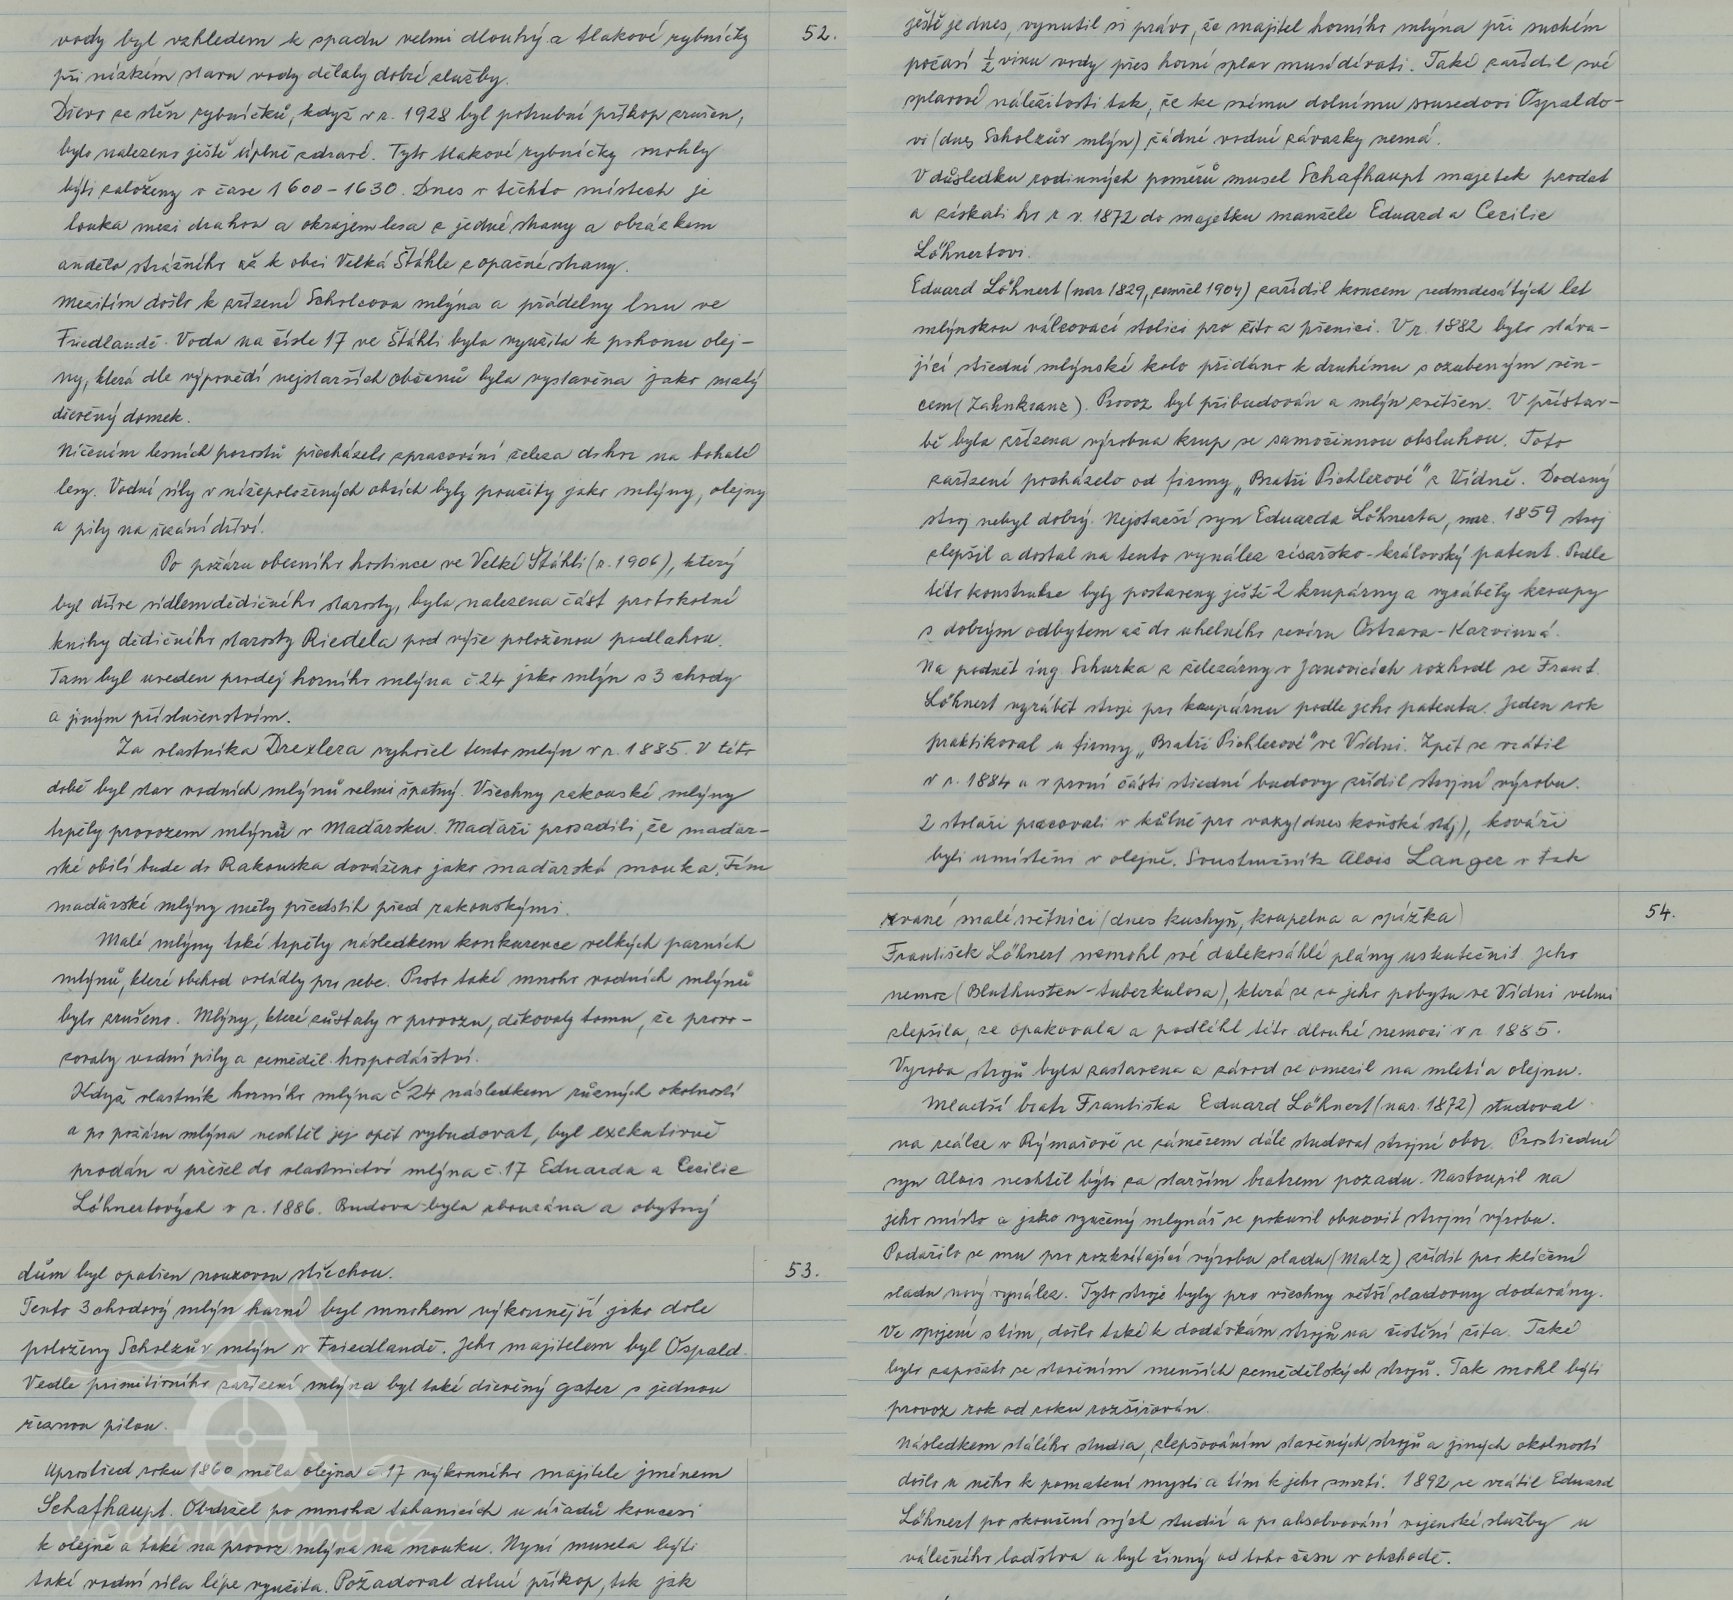 52.
vody byl vzhledem k spadu velmi dlouhý a tlakové rybníčky
při nízkém stavu vody dělaly dobré služby.
Dřevo ze stěn rybníčků, když v r. 1928 byl potrubní příkop zrušen,
bylo nalezeno ještě úplně zdravé. Tyto tlakové rybníčky mohly
býti založeny v čase 1600-1630. Dnes v těchto místech je
louka mezi drahou a okrajem lesa z jedné strany a obrázkem
anděla strážního až k obci Velká Štáhle z opačné strany.
Mezitím došlo k zřízení Scholzova mlýna a přádelny lnu ve
Friedlandě. Voda na čísle 17 ve Štáhli byla využita k pohonu olej-
ny, která dle výpovědí nejstarších občanů byla vystavěna jako malý
dřevěný domek.
Ničením lesních porostů přecházelo zpracování železa do hor na bohaté
lesy. Vodní síly v nížepoložených obcích byly použity jako mlýny, olejny
a pily na řezání dříví.
Po požáru obecního hostince ve Velké Štáhli (r. 1906), který
byl dříve sídlem dědičného starosty, byla nalezena část protokolní
knihy dědičného starosty Riedela pod výše položenou podlahou.
Tam byl uveden prodej horního mlýna č. 24 jako mlýn s 3 chody
a jiným příslušenstvím.
Za vlastníka Drexlera vyhořel tento mlýn v r. 1885. V této
době byl stav vodních mlýnů velmi špatný. Všechny rakouské mlýny
trpěly provozem mlýnů v Maďarsku. Maďaři prosadili, že maďar-
ské obilí bude do Rakouska dováženo jako maďarská mouka. Tím
maďarské mlýny měly předstih před rakouskými.
Malé mlýny také trpěly následkem konkurence velkých parních
mlýnů, které obchod ovládly pro sebe. Proto také mnoho vodních mlýnů
bylo zrušeno. Mlýny, které zůstaly v provozu, děkovaly tomu, že provo-
zovaly vodní pily a zeměděl. hospodářství.
Když vlastník horního mlýna č 24 následkem různých okolností
a po požáru mlýna nechtěl jej opět vybudovat, byl exekutivně
prodán a přešel do vlastnictví mlýna č. 17 Eduarda a Cecilie
Löhnertových v r. 1886. Budova byla zbourána a obytný
53.
dům byl opatřen nouzovou střechou.
Tento 3 chodový mlýn horní byl mnohem výkonnější jako dole
položený Scholzův mlýn v Friedlandě. Jeho majitelem byl Ospald.
Vedle primitivního zařízení mlýna byl také dřevěný gater s jednou
řeznou pilou.
Uprostřed roku 1860 měla olejna č 17 výkonného majitele jménem
Schafhaupt. Obdržel po mnoha tahanicích u úřadů koncesi
k olejně a také na provoz mlýna na mouku. Nyní musela býti
také vodní síla lépe využita. Požadoval dolní příkop, tak jak
ještě je dnes, vynutil si právo, že majitel horního mlýna při suchém
počasí ½ viku vody přes horní splav musí dávati. Také zařídil své
splavové náležitosti tak, že ke svému dolnímu sousedovi Ospaldo-
vi (dnes Scholzův mlýn) žádné vodní závazky nemá.
V důsledku rodinných poměrů musel Schafhaupt majetek prodat
a získali ho r v. 1872 do majetku manželé Eduard a Cecilie
Löhnertovi.
Eduard Löhnert (nar 1829, zemřel 1904) zařídil koncem sedmdesátých let
mlýnskou válcovací stolici pro žito a pšenici. V r. 1882 bylo stáva-
jící střední mlýnské kolo přidáno k druhému s ozubeným věn-
cem (Zahnkranz). Provoz byl přibudován a mlýn zvětšen. V přístav-
bě byla zřízena výrobna krup se samočinnou obsluhou. Toto
zařízení pocházelo od firmy „Bratři Pichlerové" z Vídně. Dodaný
stroj nebyl dobrý. Nejstarší syn Eduarda Löhnerta, nar. 1859 stroj
zlepšil a dostal na tento vynález císařsko-královský patent. Podle
této konstrukce byly postaveny ještě 2 krupárny a vyráběly kroupy
s dobrým odbytem až do uhelného revíru Ostrava-Karvinná.
Na podnět ing Schurka z železárny v Janovicích rozhodl se Frant.
Löhnert vyrábět stroje pro krupárnu podle jeho patentu. Jeden rok
praktikoval u firmy „Bratři Pichlerové" ve Vídni. Zpět se vrátil
v r. 1884 a v první části střední budovy zřídil strojní výrobu.
2 stolaři pracovali v kůlně pro vozy (dnes koňská stáj), kováři
byli umístěni v olejně. Soustružník Alois Langer v tak
54.
zvané malé světnici (dnes kuchyň, koupelna a spížka)
František Löhnert nemohl své dalekosáhlé plány uskutečnit. Jeho
nemoc (Bluthusten-tuberkulosa), která se za jeho pobytu ve Vídni velmi
zlepšila, se opakovala a podlehl této dlouhé nemoci v r 1885.
Vyroba strojů byla zastavena a závod se omezil na mletí a olejnu.
Mladší bratr Františka Eduard Löhnert (nar. 1872) studoval
na reálce v Rýmařově se záměrem dále studovat strojní obor. Prostřední
syn Alois nechtěl býti za starším bratrem pozadu. Nastoupil na
jeho místo a jako vyučený mlynář se pokusil obnovit strojní výrobu.
Podařilo se mu pro rozkvétající výrobu sladu (Malz) zřídit pro klíčení
sladu nový vynález. Tyto stroje byly pro všechny větší sladovny dodávány.
Ve spojení s tím, došlo také k dodávkám strojů na čistění žita. Také
bylo započato se stavěním menších zemědělských strojů. Tak mohl býti
provoz rok od roku rozšiřován.
Následkem stálého studia, zlepšováním stavěných strojů a jiných okolností
došlo u něho k pomatení mysli a tím k jeho smrti. 1892 se vrátil Eduard
Löhnert po skončení svých studií a po absolvování vojenské služby u
válečného loďstva a byl činný od toho času v obchodě.
vodnimlyny.cz